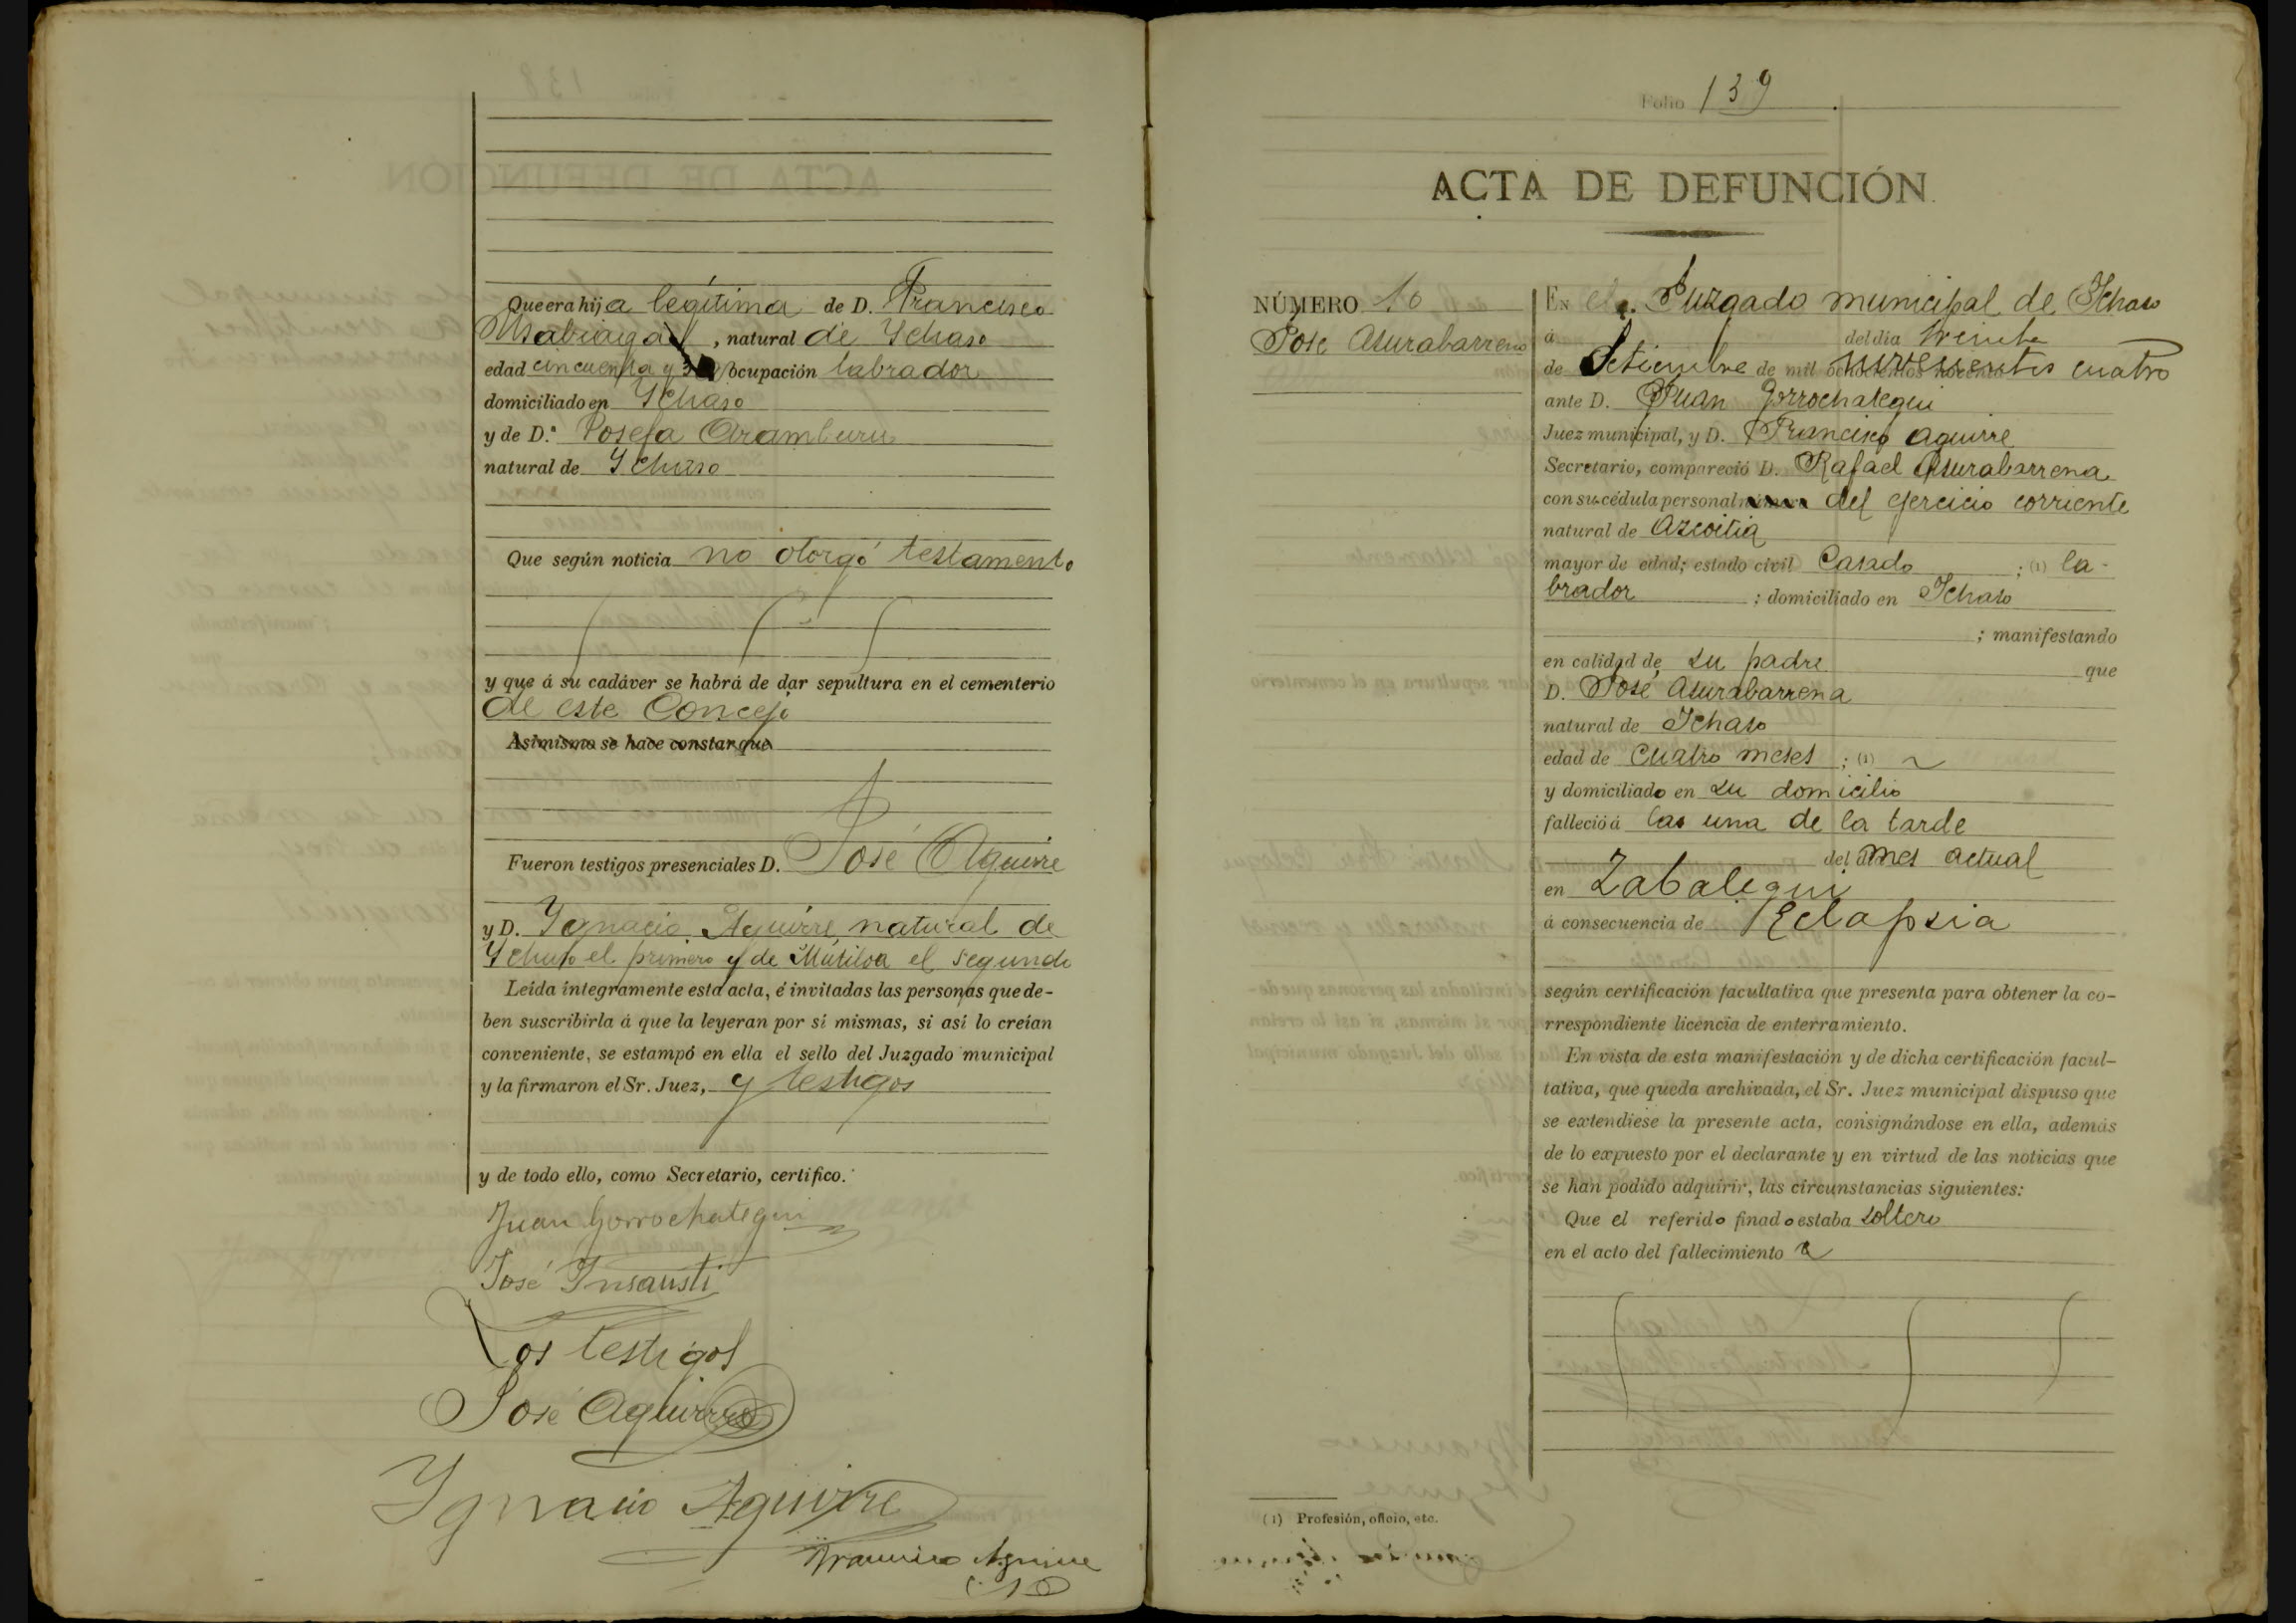 Que era hija legítima de D. Francisco
Usabiaga, natural de Ychaso
edad cincuenta y ocupación labrador
domiciliado en Ychaso
y de D.ª Josefa Aramburu
natural de Ychaso
Que según noticia no otorgó testamento
y que á su cadáver se habrá de dar sepultura en el cementerio
de este Concejo
Asimismo se hace constar que
Fueron testigos presenciales D. José Aguirre
y D. Ygnacio Aguirre natural de
Ychaso el primero y de Mutiloa el segundo
Leída íntegramente esta acta, é invitadas las personas que de-
ben suscribirla á que la leyeran por sí mismas, si así lo creían
conveniente, se estampó en ella el sello del Juzgado municipal
y la firmaron el Sr. Juez, y testigos
y de todo ello, como Secretario, certifico.
Juan Gorrochategui
José Insausti
Los testigos
José Aguirre
Ygnacio Aguirre
Francisco Aguirre
Folio 139
ACTA DE DEFUNCIÓN
NÚMERO 10
José Asurabarrena
En el Juzgado municipal de Ichaso
á del dia treinta
de Setiembre de mil novecientos cuatro
ante D. Juan Gorrochategui
Juez municipal, y D. Francisco Aguirre
Secretario, compareció D. Rafael Asurabarrena
con su cédula personal del ejercicio corriente
natural de Azcoitia
mayor de edad; estado civil Casado ; (1) la-
brador ; domiciliado en Ichaso
; manifestando
en calidad de su padre que
D. José Asurabarrena
natural de Ichaso
edad de cuatro meses ; (1)
y domiciliado en su domicilio
falleció á las una de la tarde
del mes actual
en Zabalegui
á consecuencia de Eclapsia
según certificación facultativa que presenta para obtener la co-
rrespondiente licencia de enterramiento.
En vista de esta manifestación y de dicha certificación facul-
tativa, que queda archivada, el Sr. Juez municipal dispuso que
se extendiese la presente acta, consignándose en ella, además
de lo expuesto por el declarante y en virtud de las noticias que
se han podido adquirir, las circunstancias siguientes:
Que el referido finado estaba soltero
en el acto del fallecimiento
(1) Profesión, oficio, etc.